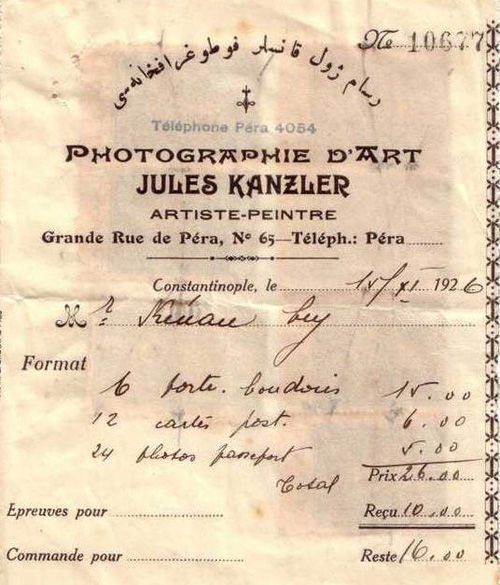 رسام ژول قانسلر فوطوغرافخانه‌سی
№ 10677
Téléphone Péra 4054
PHOTOGRAPHIE D'ART
JULES KANZLER
ARTISTE-PEINTRE
Grande Rue de Péra, No 65—Téléph.: Péra
Constantinople, le 15/XI 1926
Mr Kénan bey
Format
6 porte. boudoirs 15.00
12 cartes post. 6.00
24 photos passeport 5.00
Total Prix 26.00
Epreuves pour Reçu 10.00
Commande pour Reste 16.00